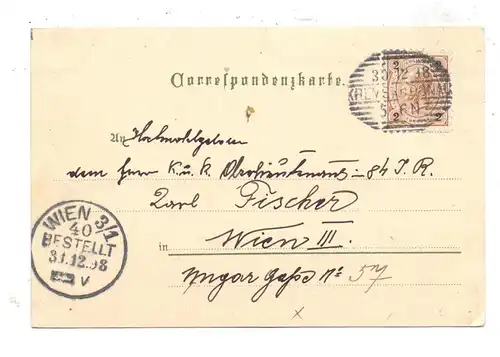 Correspondenzkarte.
2
30 12 98
2 2
An Hochwohlgeboren
dem Herrn K. u. k. Oberleutenant 84 I. R.
Carl Fischer
in Wien III.
Ungar Gaße No 57
WIEN 3/1
40
BESTELLT
31.12.98
V
x